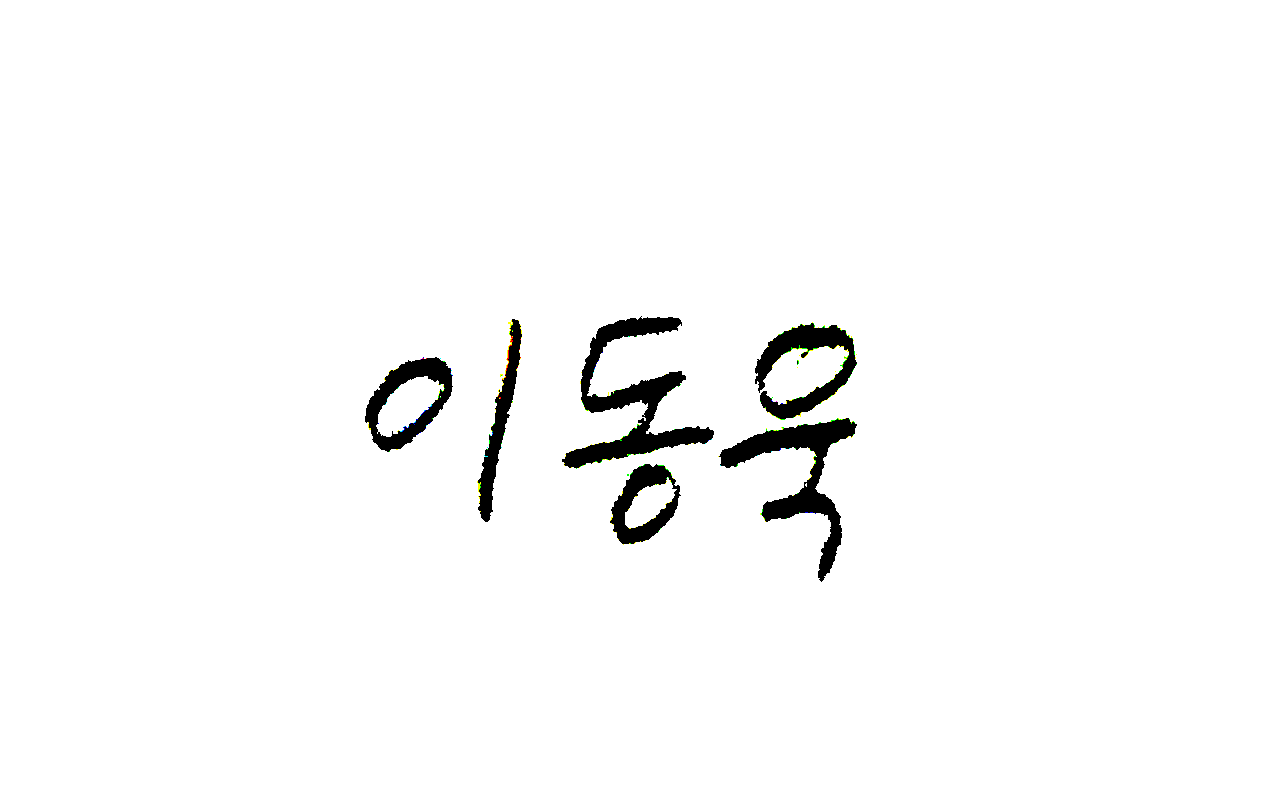 이동욱